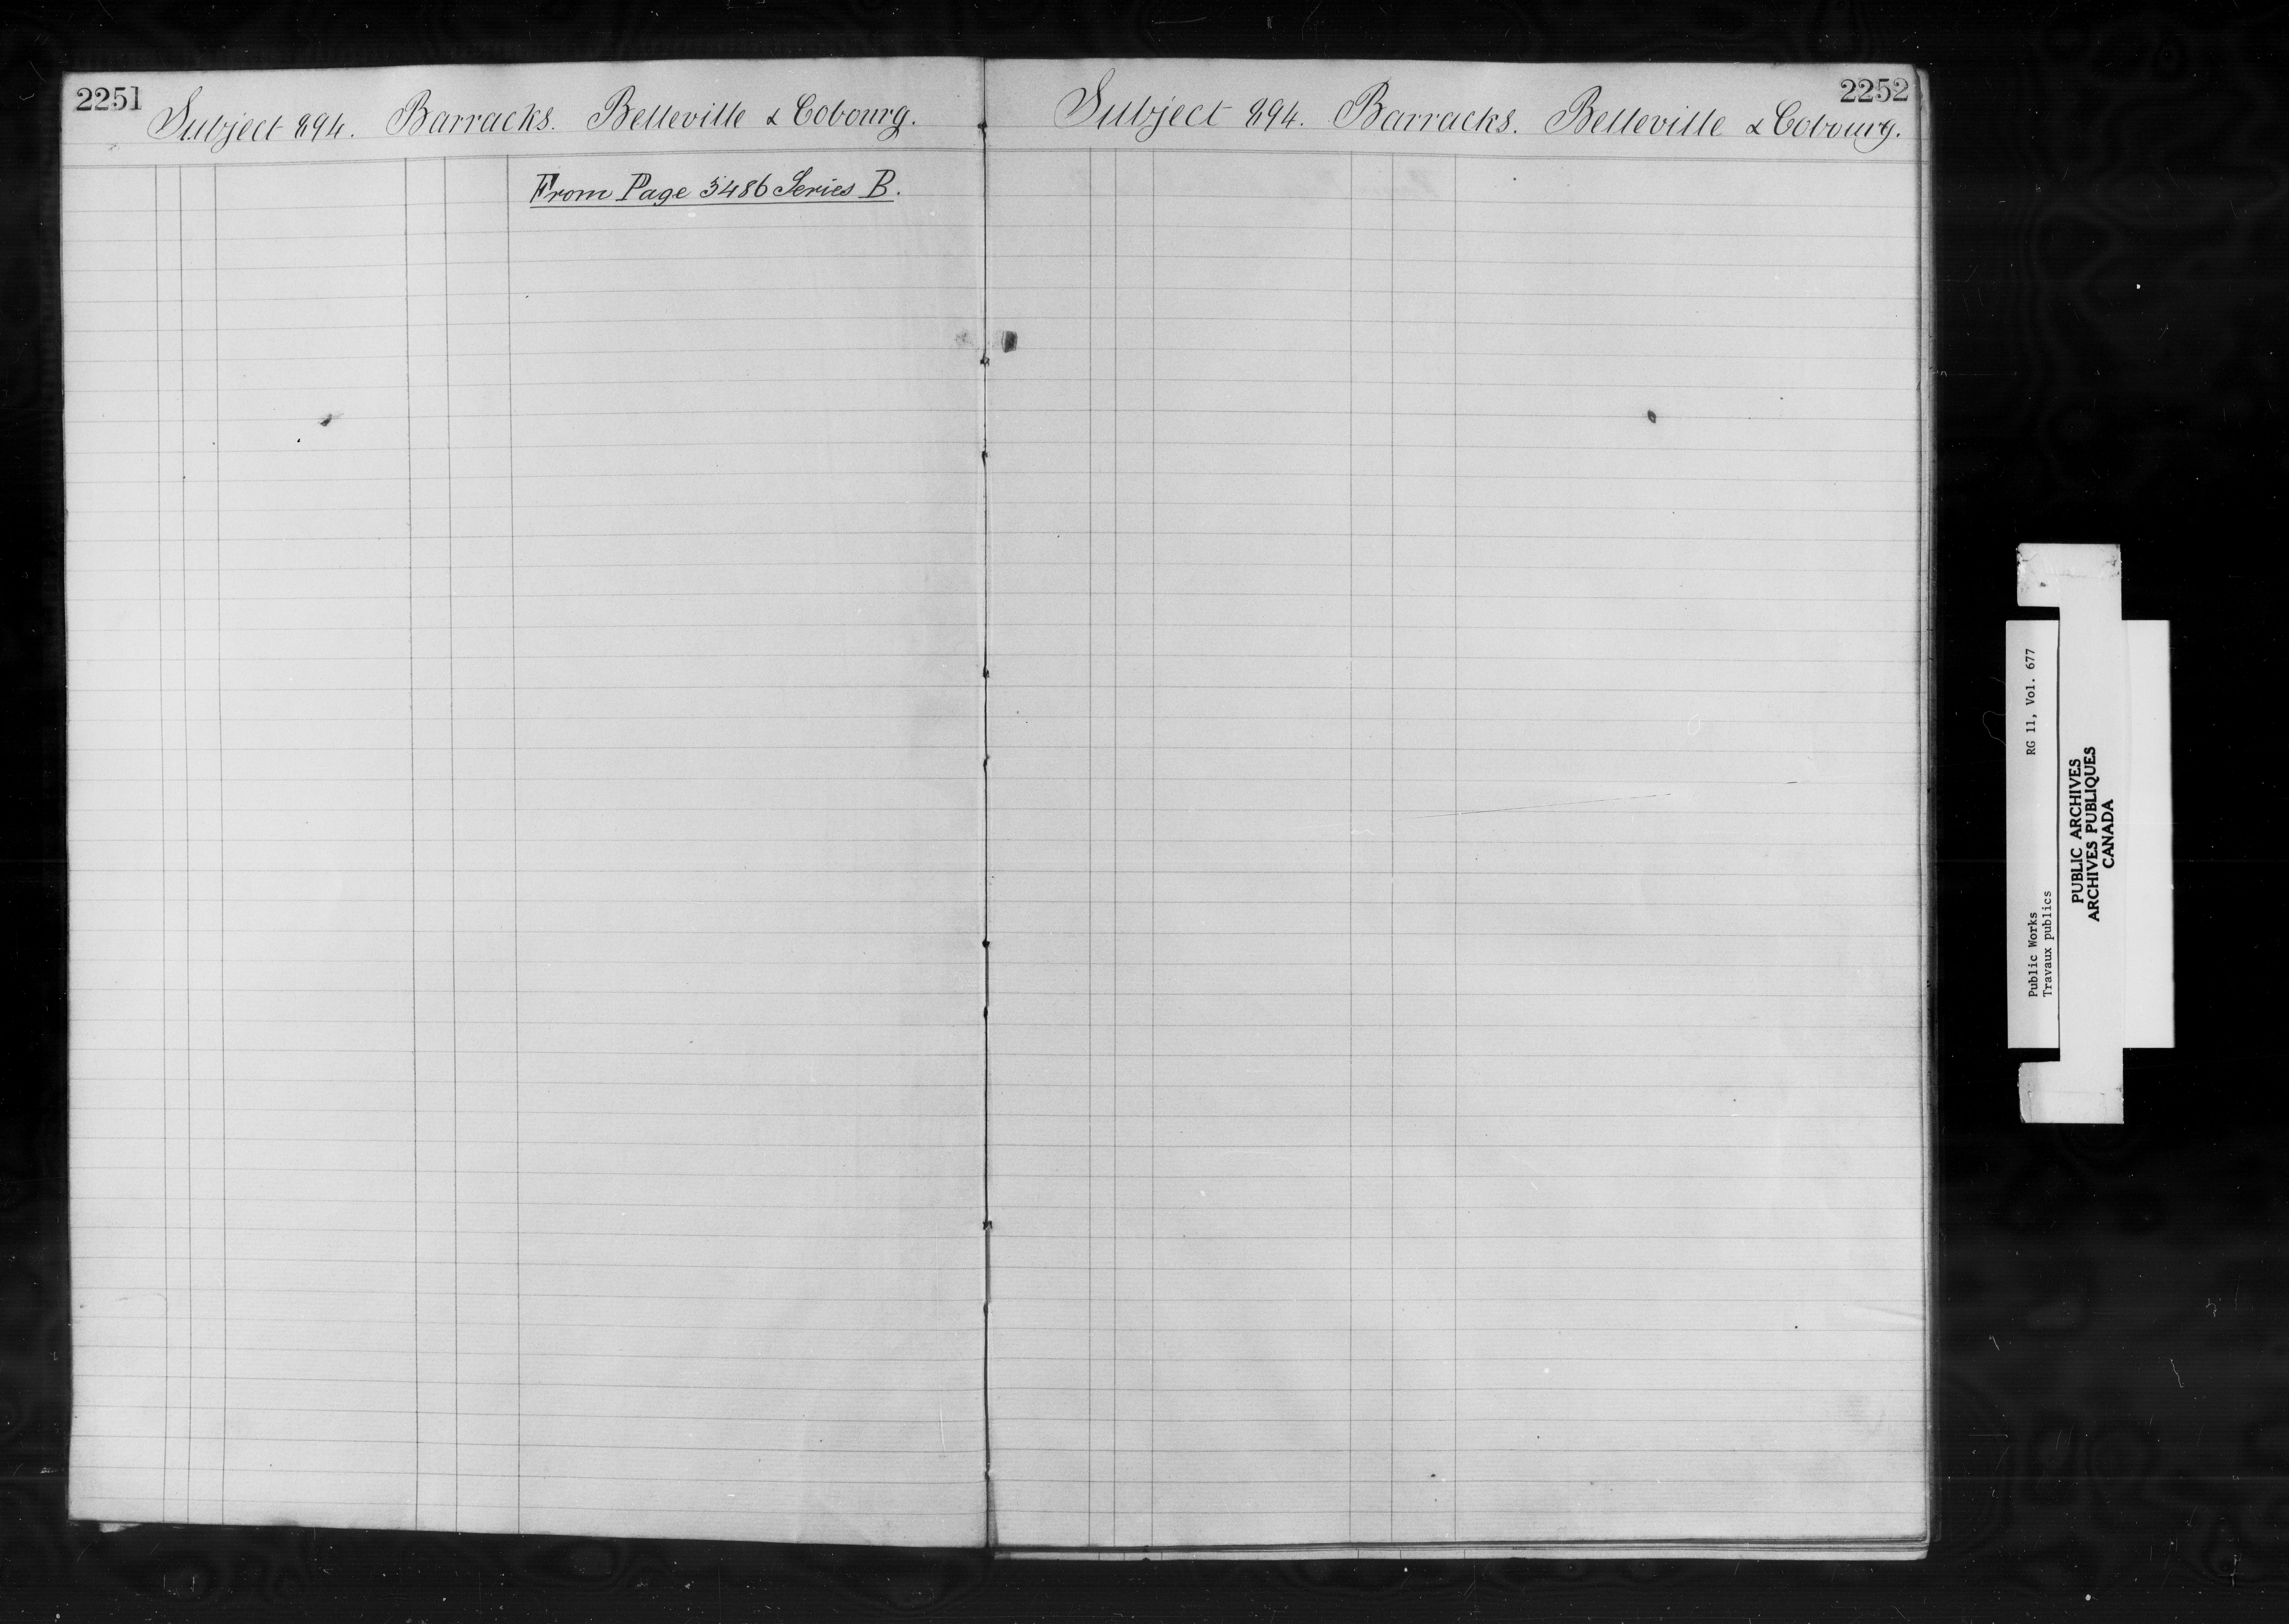 2251
Subject 894. Barracks. Belleville & Cobourg.
From Page 3486 Series B.
2252
Subject 894. Barracks. Belleville & Cobourg.
Public Works RG 11, Vol. 677
Travaux publics
PUBLIC ARCHIVES
ARCHIVES PUBLIQUES
CANADA